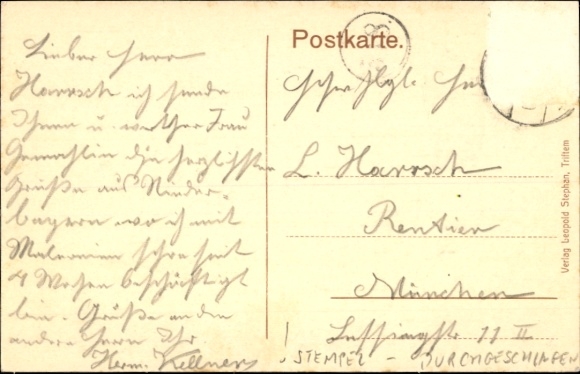 Lieber Herr
Harrsch ich sende
Ihnen u. werther Frau
Gemahlin die herzlichsten
Grüße aus Nieder-
bayern wo ich mit
Malereien schon seit
4 Wochen beschäftigt
bin. Grüße an den
andern Herrn Ihr
Herm. Kellner
Postkarte.
L. Harrsch
Rentier
München
Lessingstr 11 II
STEMPEL - DURCHGESCHLAGEN
Verlag Leopold Stephan, Tittem